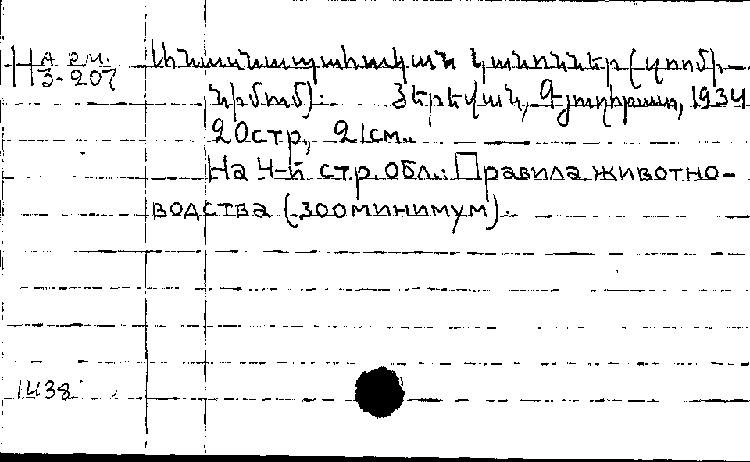 Н А рм. Անասնապահական կանոններ (զոոմի-
3-207 նիմում): Յերեվան, Գյուղհրատ, 1934
20стр, 21см.
На 4-й стр. обл.: Правила животно-
водства (зооминимум).
1438